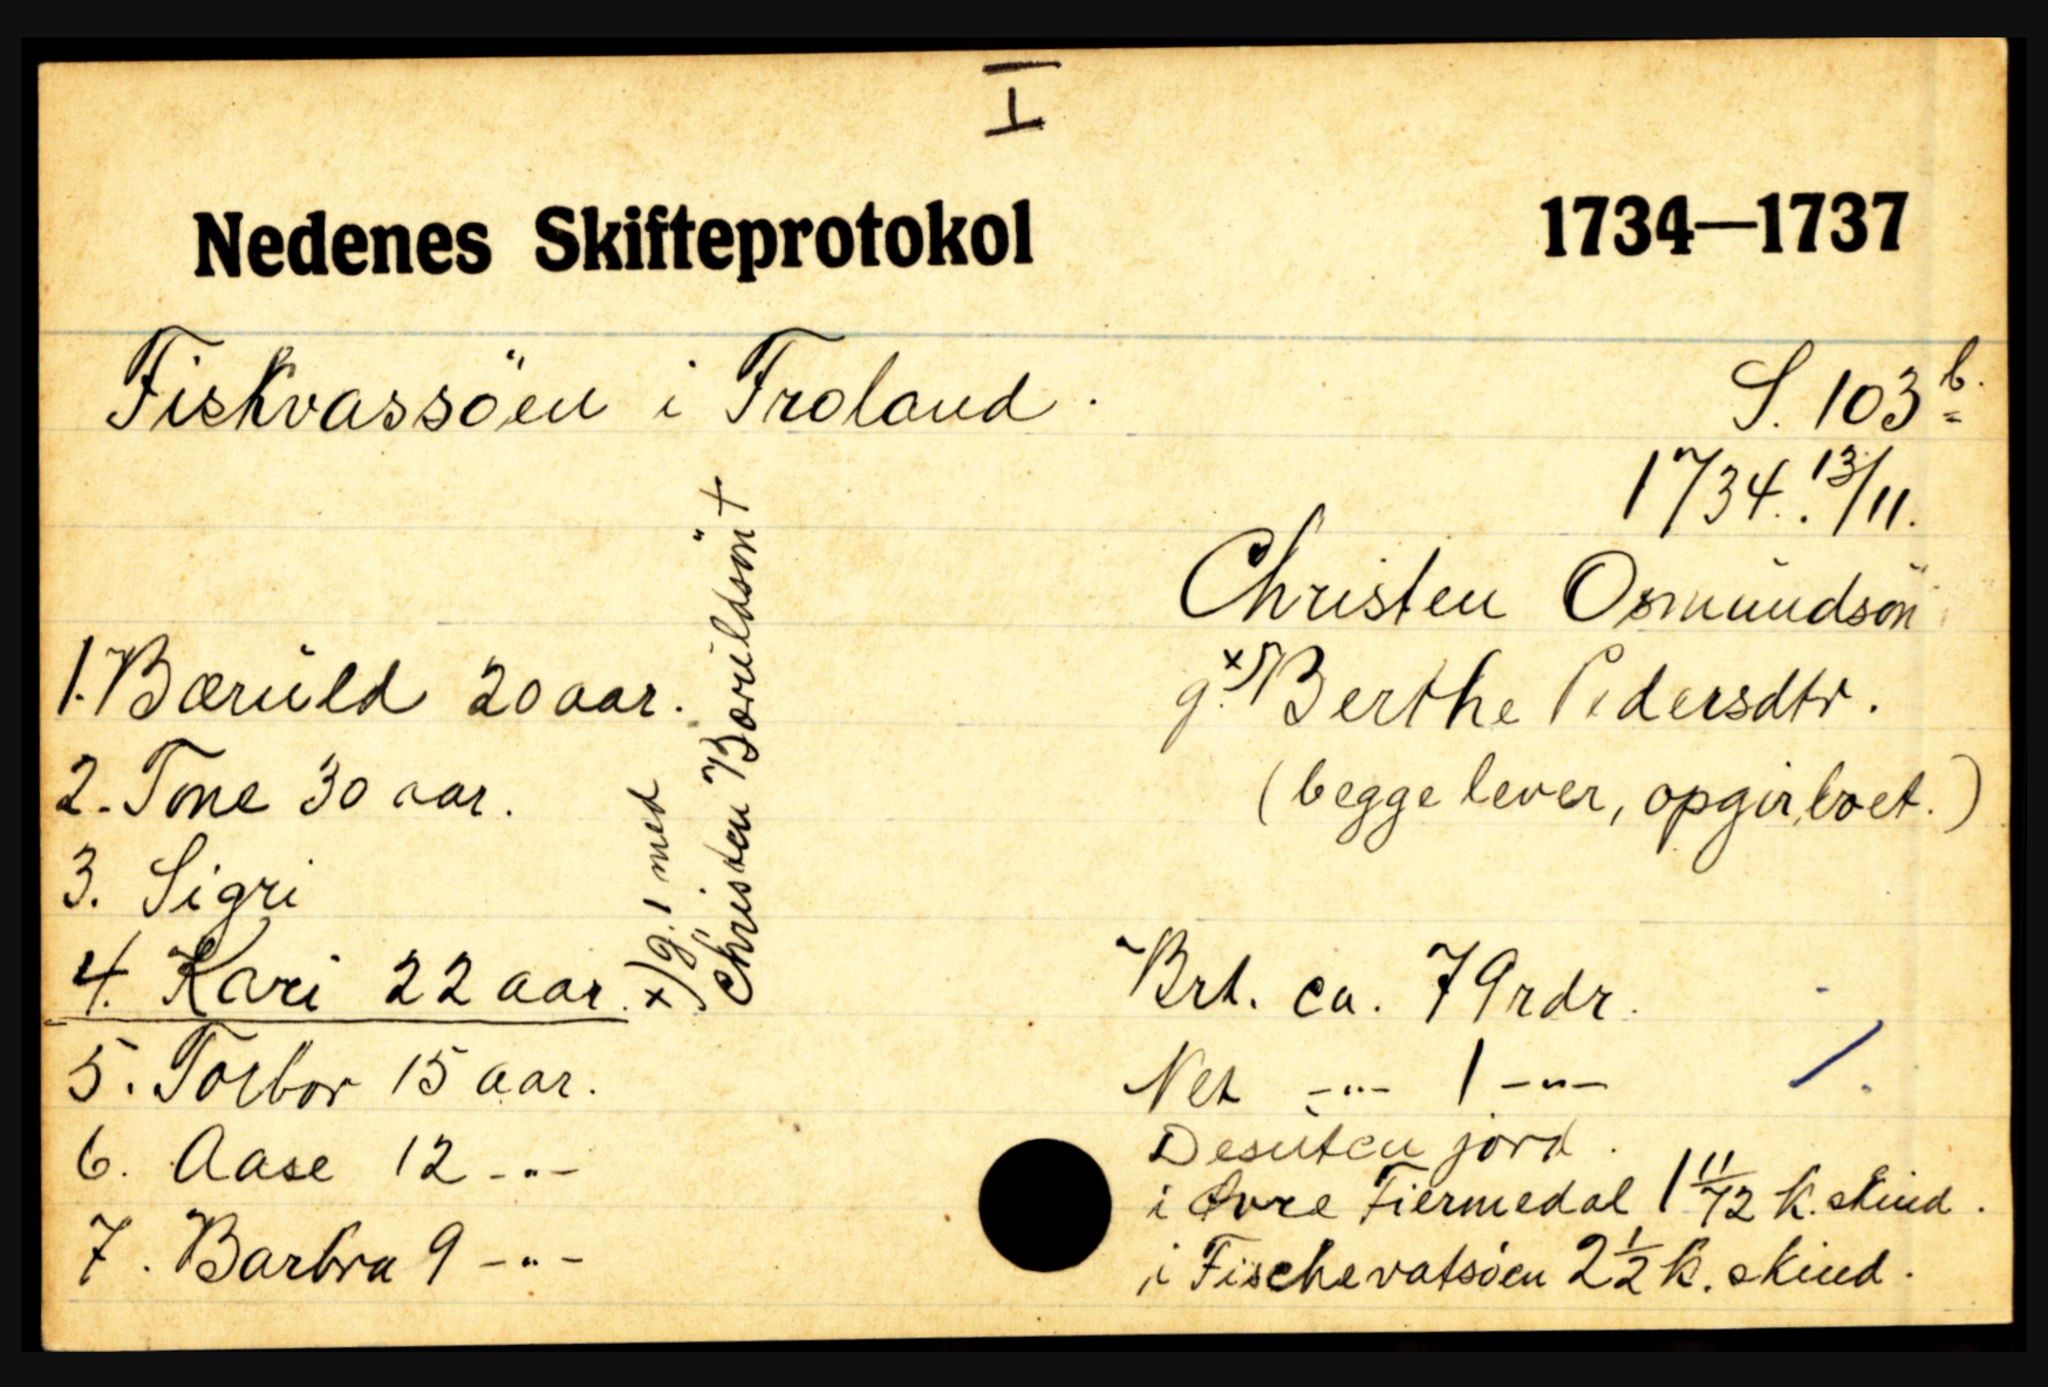 I
Nedenes Skifteprotokol 1734—1737
Fiskvassöen i Froland.
S. 103 b.
1734. 13/11.
Christen Osmundsön
g. x) Berthe Pedersdtr.
(begge lever, opgir boet.)
1. Bæruld 20 aar.
2. Tone 30 aar.
3. Sigri
4. Kari 22 aar.
5. Torbor 15 aar.
6. Aase 12 -"-
7. Barbra 9 -"-
x) g. 1 med
Christen Bæruldsön +
Brt. ca. 79 rdr.
Net -"- 1 -"-
Desuten jord.
i Øvre Fiermedal 1 11/72 k. skind.
i Fischevatsöen 2 1/2 k. skind.